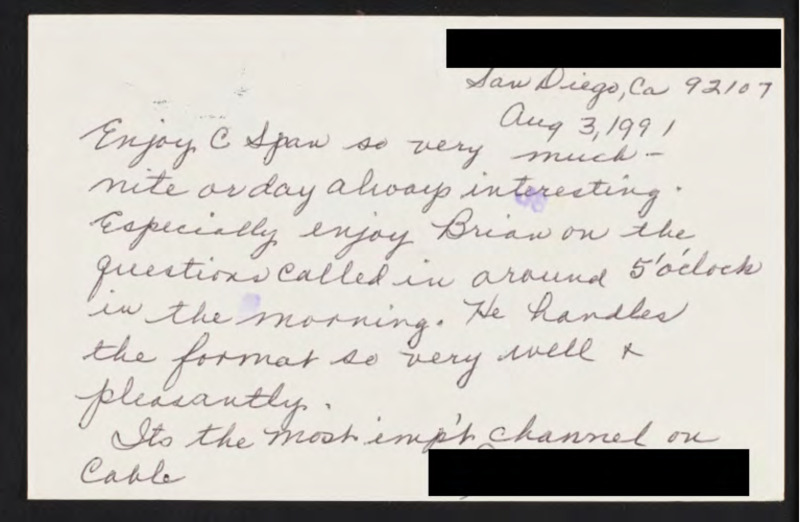 San Diego, Ca 92107
Aug 3, 1991
Enjoy C Span so very much -
nite or day always interesting.
Especially enjoy Brian on the
questions called in around 5'o'clock
in the morning. He handles
the format so very well &
pleasantly.
Its the most imp't channel on
Cable